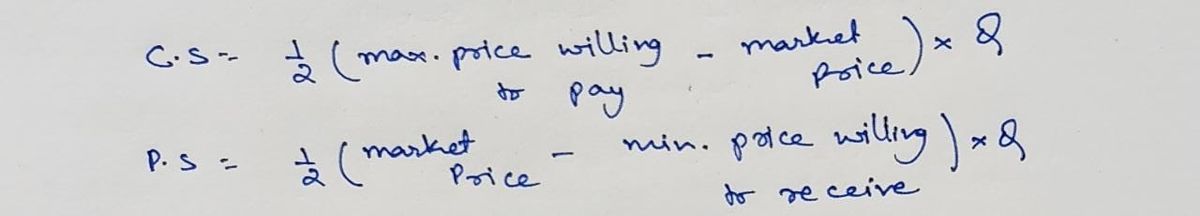 C.S = 1/2 (max. price willing to pay - market price) × Q
P.S = 1/2 (market Price - min. price willing to receive) × Q